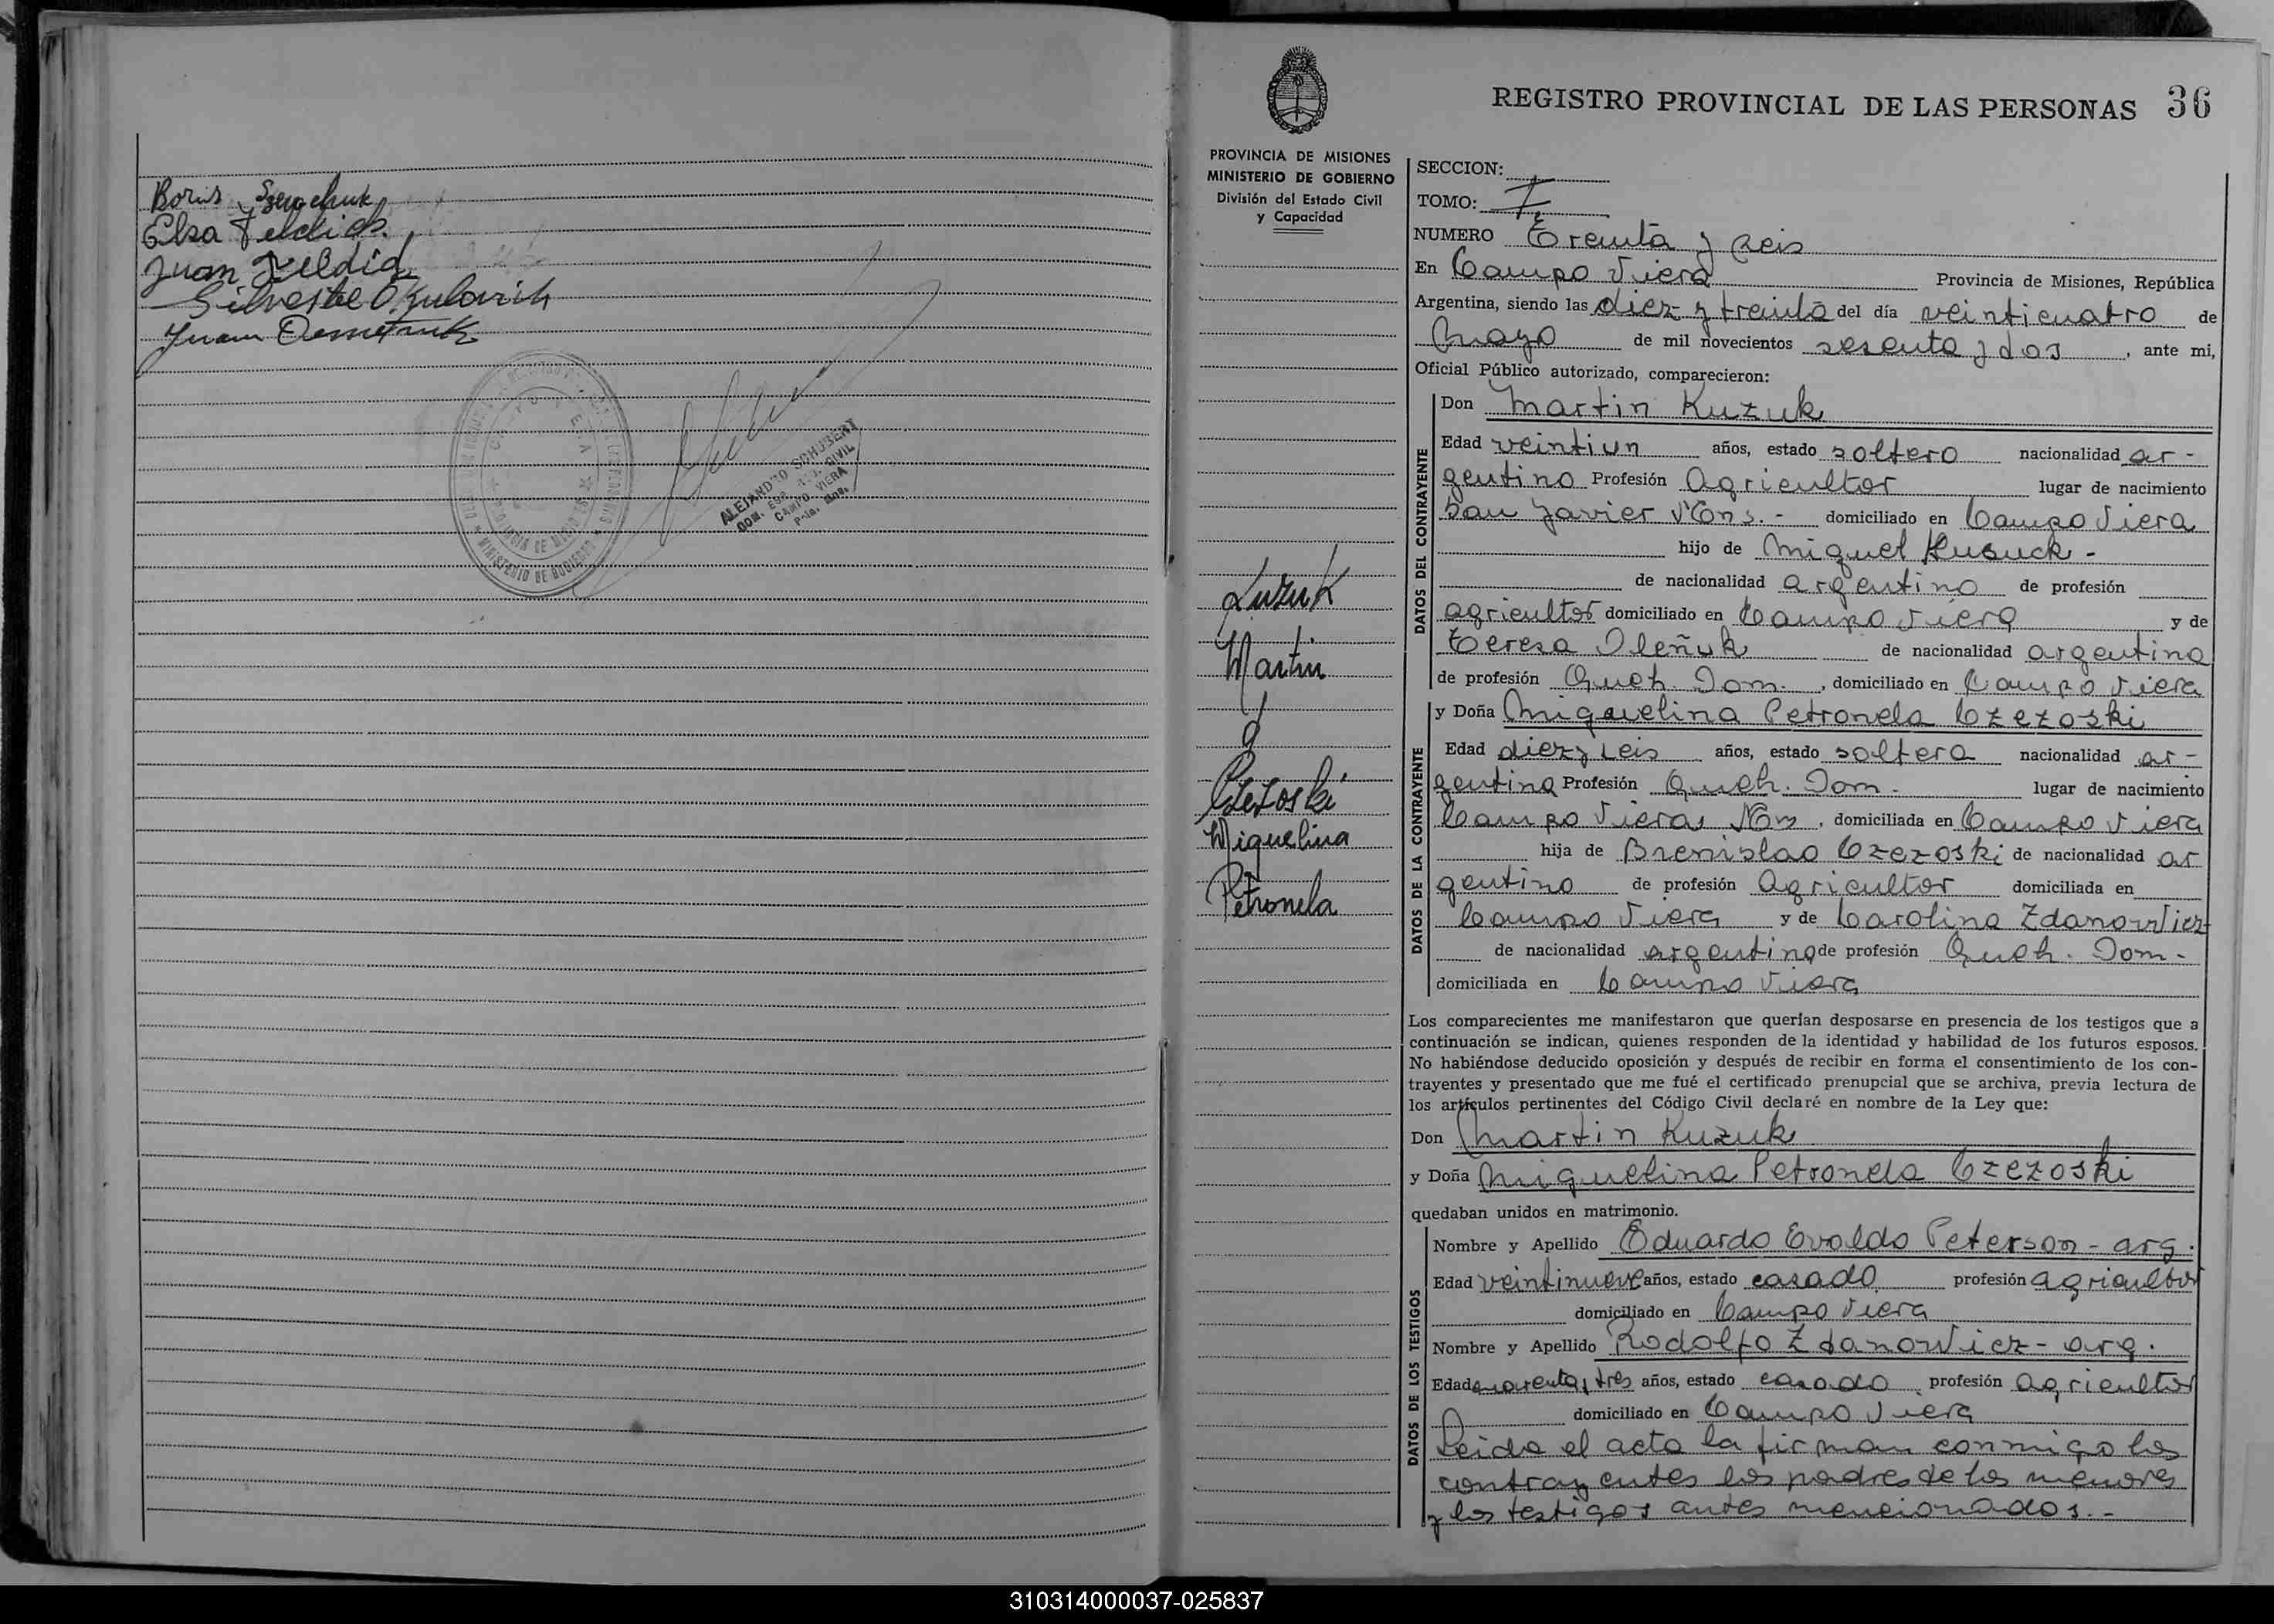 Boris Senchuk
Elsa Feldich.
Juan Feldich
Silvestre Okulovich
Juan Demetruk
ALEJANDRO SCHUBERT
CAMPO VIERA
MINISTERIO DE GOBIERNO
REGISTRO PROVINCIAL DE LAS PERSONAS 36
PROVINCIA DE MISIONES
MINISTERIO DE GOBIERNO
División del Estado Civil
y Capacidad
Kuzuk
Martin
y
Czezoski
Miquelina
Petronela
SECCION:
TOMO: I
NUMERO Treinta y seis
En Campo Viera Provincia de Misiones, República
Argentina, siendo las diez y treinta del día veinticuatro de
Mayo de mil novecientos sesenta y dos, ante mi,
Oficial Público autorizado, comparecieron:
DATOS DEL CONTRAYENTE
Don Martin Kuzuk
Edad veintiun años, estado soltero nacionalidad ar-
gentino Profesión Agricultor lugar de nacimiento
San Javier Mns.- domiciliado en Campo Viera
hijo de Miguel Kusuck-
de nacionalidad argentino de profesión
agricultor domiciliado en Campo Viera y de
Teresa Oleñuk de nacionalidad argentina
de profesión Queh. Dom., domiciliado en Campo Viera
DATOS DE LA CONTRAYENTE
y Doña Miquelina Petronela Czezoski
Edad diez y seis años, estado soltera nacionalidad ar-
gentina Profesión Queh. Dom. lugar de nacimiento
Campo Vieras Mns, domiciliada en Campo Viera
hija de Brenislao Czezoski de nacionalidad ar
gentino de profesión Agricultor domiciliada en
Campo Viera y de Carolina Zdanowicz
de nacionalidad argentina de profesión Queh. Dom-
domiciliada en Campo Viera
Los comparecientes me manifestaron que querían desposarse en presencia de los testigos que a
continuación se indican, quienes responden de la identidad y habilidad de los futuros esposos.
No habiéndose deducido oposición y después de recibir en forma el consentimiento de los con-
trayentes y presentado que me fué el certificado prenupcial que se archiva, previa lectura de
los artículos pertinentes del Código Civil declaré en nombre de la Ley que:
Don Martin Kuzuk
y Doña Miquelina Petronela Czezoski
quedaban unidos en matrimonio.
DATOS DE LOS TESTIGOS
Nombre y Apellido Eduardo Evaldo Peterson - arg.
Edad veintinueve años, estado casado profesión agricultor
domiciliado en Campo Viera
Nombre y Apellido Rodolfo Zdanowicz - arg.
Edad cuarenta y tres años, estado casado profesión Agricultor
domiciliado en Campo Viera
Leida el acta la firman conmigo los
contrayentes los padres de los menores
y los testigos antes mencionados.-
310314000037-025837